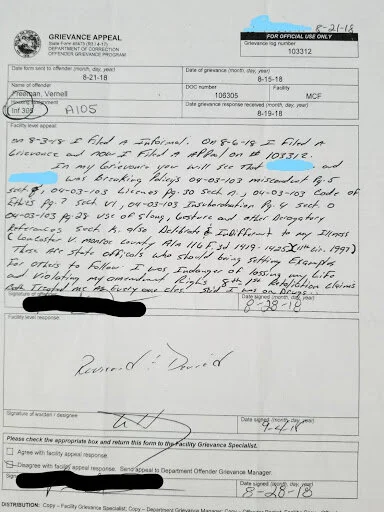 8-21-18
GRIEVANCE APPEAL
State Form 45473 (R3 / 4-17)
DEPARTMENT OF CORRECTION
OFFENDER GRIEVANCE PROGRAM
FOR OFFICIAL USE ONLY
Grievance log number
103312
Date form sent to offender (month, day, year)
8-21-18
Date of grievance (month, day, year)
8-15-18
Name of offender
Freeman, Vernell
DOC number
106305
Facility
MCF
Housing assignment
Inf 305
A105
Date grievance response received (month, day, year)
8-19-18
Facility level appeal:
on 8-3-18 I Filed A Informal. on 8-6-18 I Filed A
Grievance and now I Filed A Appeal on # 103312.
In my Grievance you will see That and
was Breaking Policys 04-03-103 misconduct Pg. 5
sect 04-03-103 Pg. 30 sect N, 04-03-103 Code of
Ethics Pg. 7 sect VI, 04-03-103 Insubordination Pg. 4 sect O
04-03-103 Pg. 28 Use of slang, Gesture and other Derogatory
References sect K. also Deliberate Indifferent to my Illness
(Lancaster V. monroe County Ala 116 F. 3d 1419-1425)(11th cir. 1997)
These Are State officals who should being Setting Examples
For others to Follow I was Indanger of lossing my Life
and Violating my amendment Rights 8th 1st Retaliation Claims
Both Treated me As Every one else said I was on Drugs..
Signature of
Date signed (month, day, year)
8-28-18
Facility level response:
Denied
Signature of warden / designee
Date signed (month, day, year)
9-4-18
Please check the appropriate box and return this form to the Facility Grievance Specialist.
Agree with facility appeal response.
Disagree with facility appeal response. Send appeal to Department Offender Grievance Manager.
Date signed (month, day, year)
8-28-18
DISTRIBUTION: Copy – Facility Grievance Specialist; Copy – Department Grievance Manager; Copy – Offender